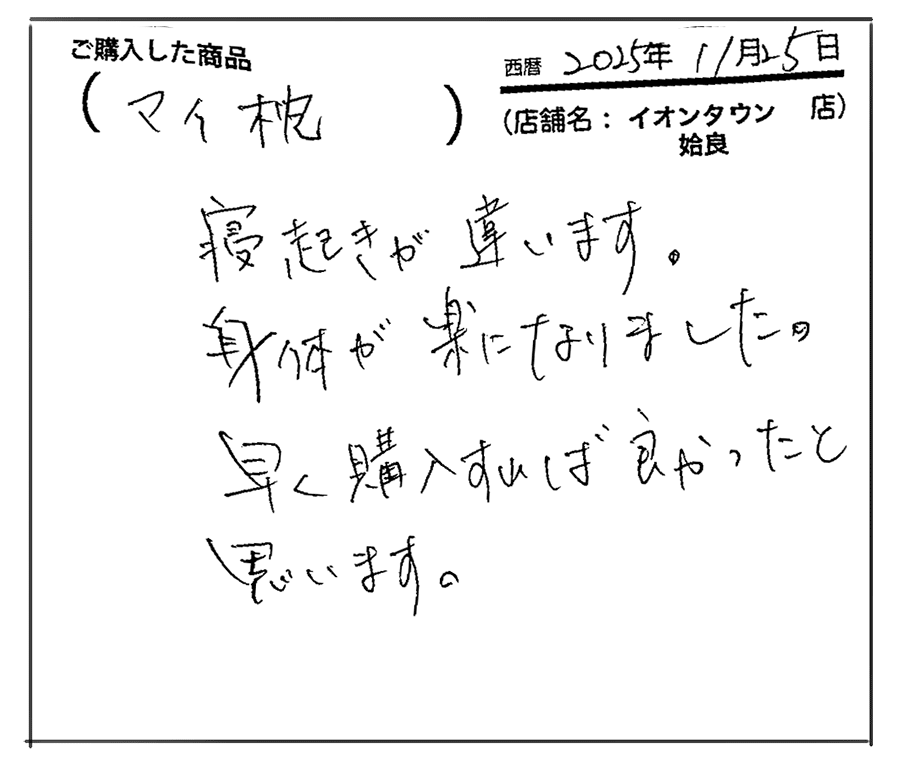 ご購入した商品
(マイ枕)
西暦 2025年 11月25日
(店舗名：イオンタウン 店)
姶良
寝起きが違います。
身体が楽になりました。
早く購入すれば良かったと
思います。